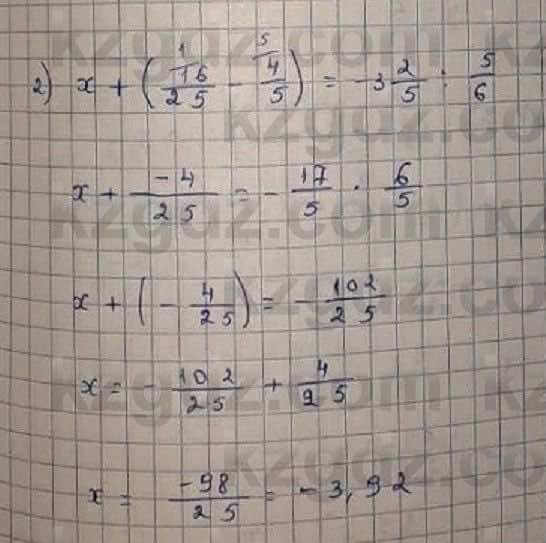 2) x + (16/25 - 4/5) = -3 2/5 : 5/6
x + -4/25 = - 17/5 · 6/5
x + (- 4/25) = - 102/25
x = - 102/25 + 4/25
x = -98/25 = - 3,92